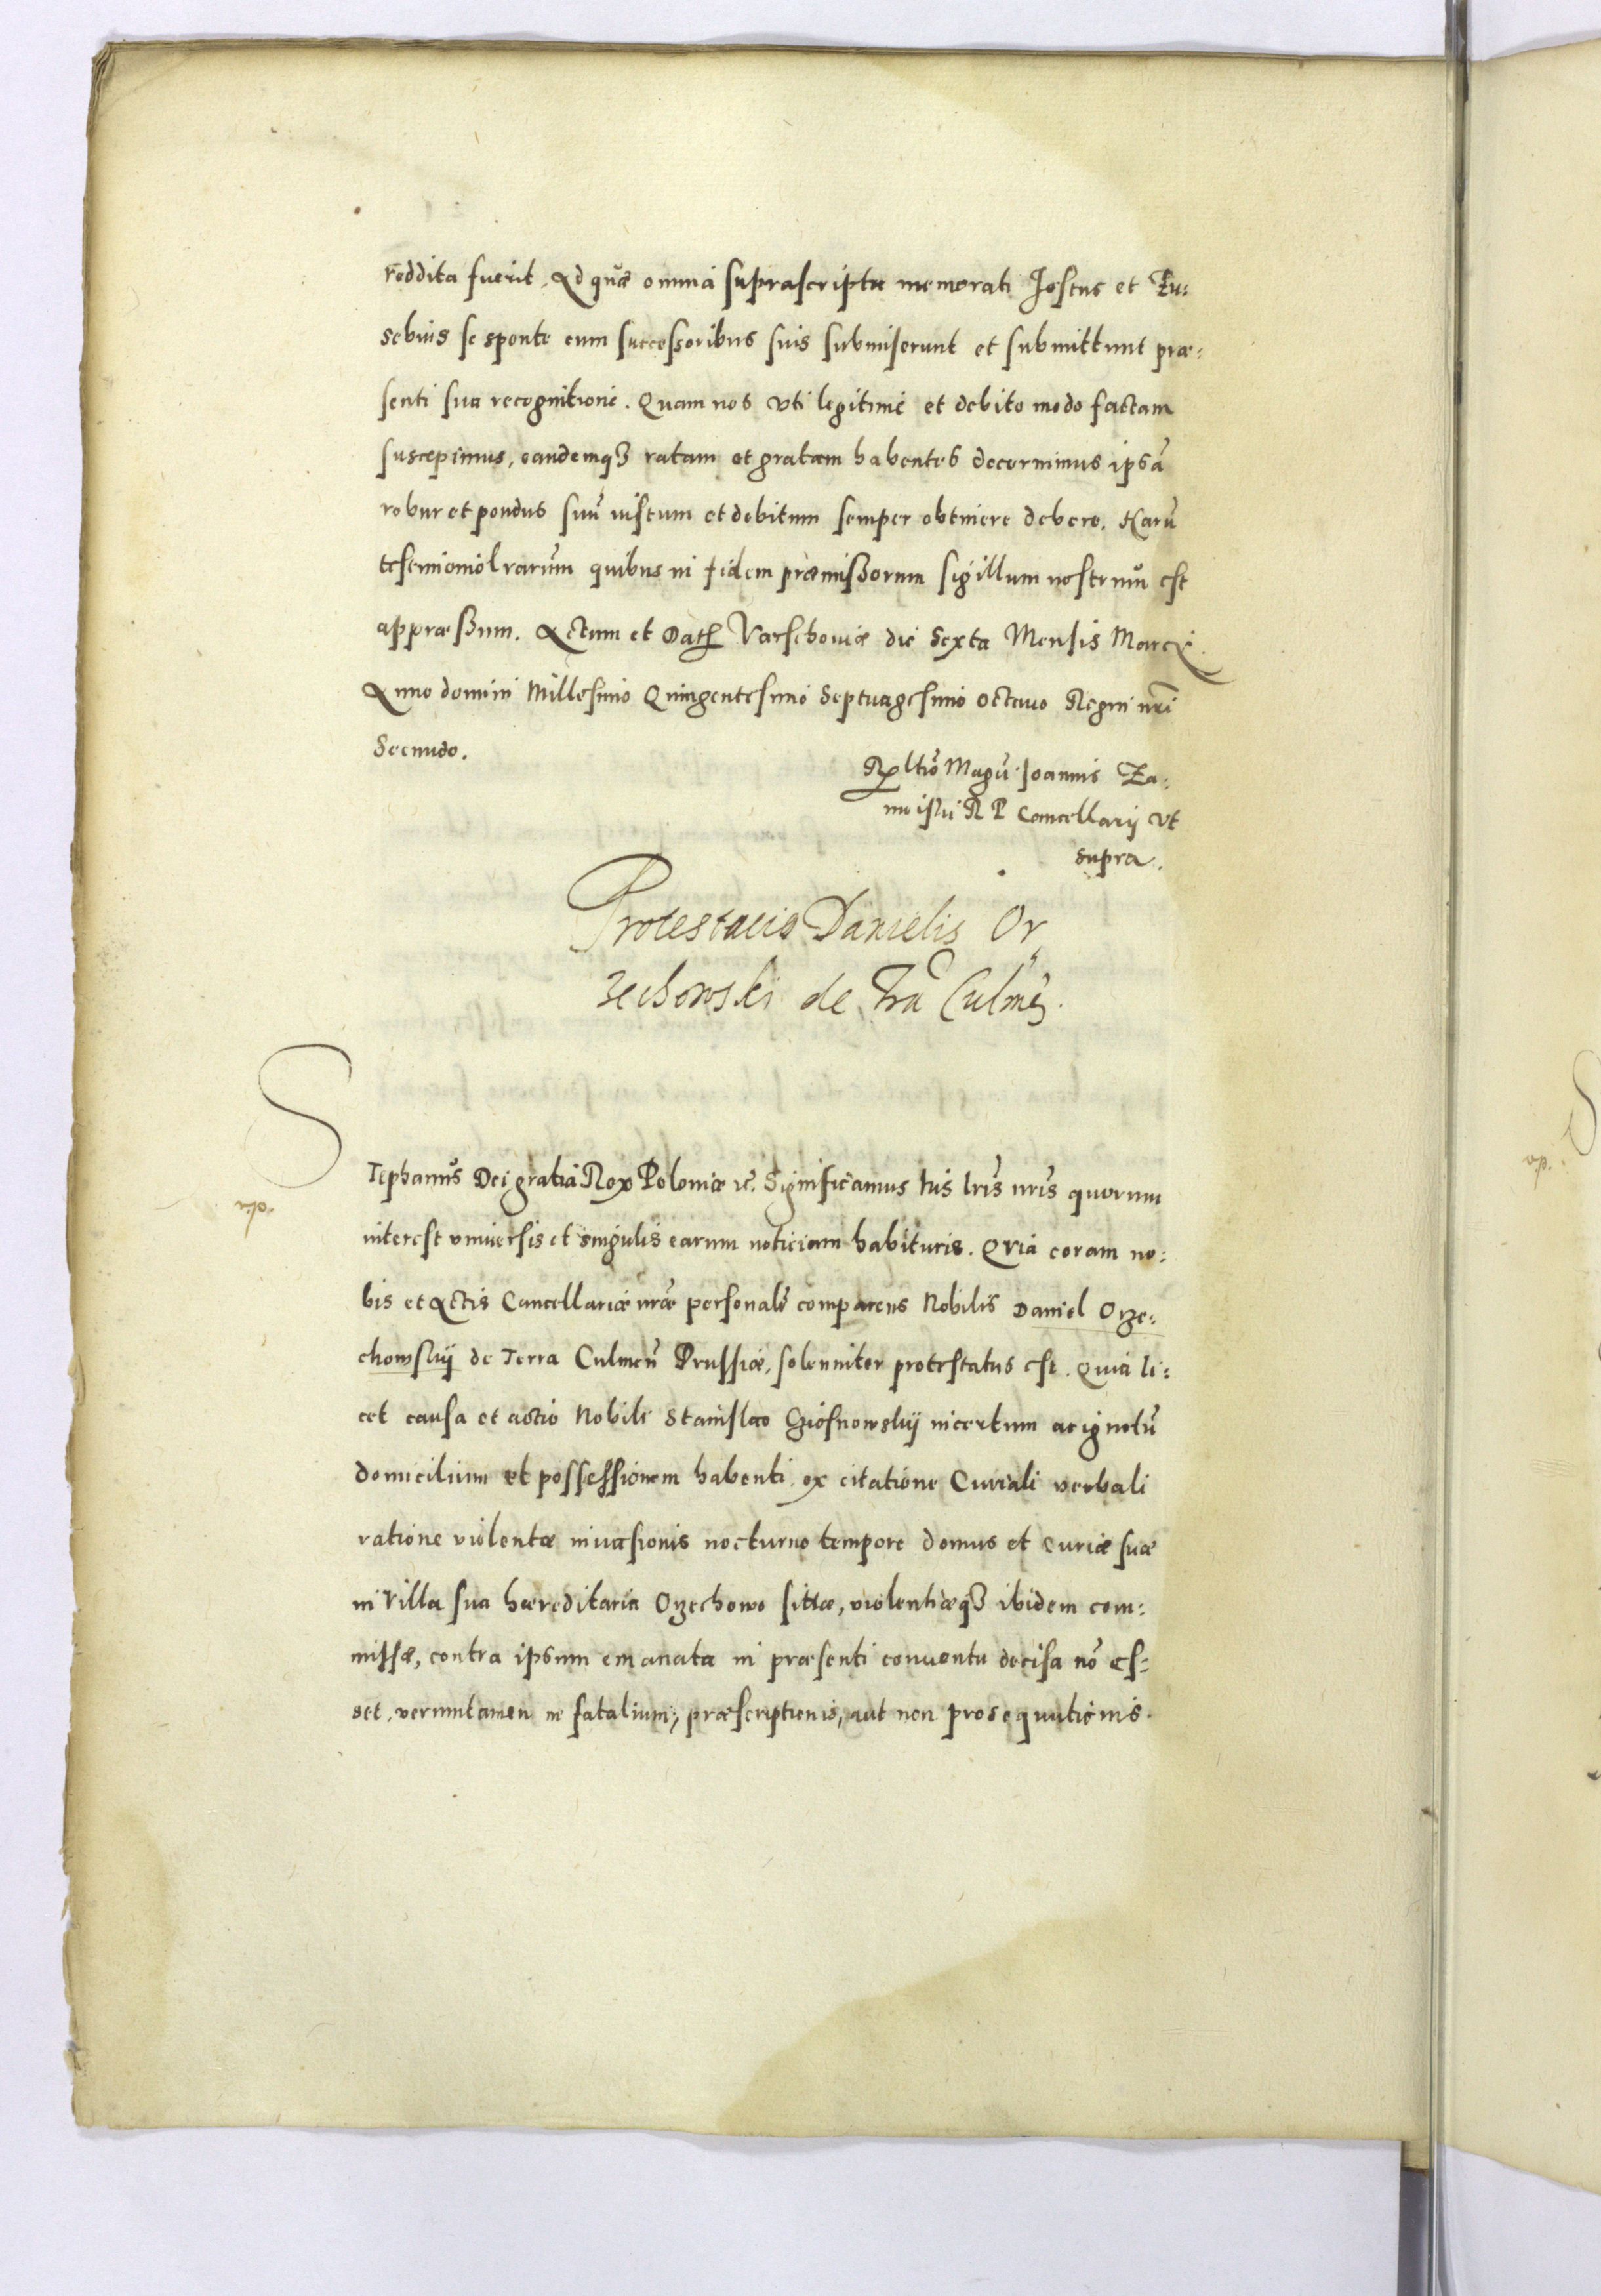 reddita fuerit. Ad quæ omnia suprascripta memorati Jostus et Eu:
sebius se sponte cum successoribus suis submiserunt et submittunt præ:
senti sua recognitione. Quam nos vti legitimè et debito modo factam
suscepimus, eandemq3 ratam et gratam habentes decernimus ipsā
robur et pondus suū iustum et debitum semper obtinere debere. Harū
testimonio lrarum̄ quibus in fidem præmissorum sigillum nostrum est
appræssum. Actum et Dat Varschouiæ die Sexta Mensis Marcÿ.
Anno domini Millesimo Quingentesimo Septuagesimo octauo Regni nr̄i
Secundo.
Rltio Magci Joannis Za:
moiskii R P Cancellarij vt
supra.
Protestacio Danielis Or
zechowski de Tra Culmēn.
Stephanus Dei gratia Rex Poloniæ etc. Significamus his lris nris quorum
interest vniuersis et singulis earum noticiam habituris. Quia coram no:
bis et Actis Cancellariæ nræ personalr comparens Nobilis Daniel Orze:
chowskij de Terra Culmen̄ Prussiæ, solenniter protestatus est. Quia li:
cet causa et actio Nobili Stanislao Gziosnowskij incertum ac ignotū
domicilium et possessionem habenti ex citatione Curiali verbali
ratione violentæ inuasionis nocturno tempore domus et curiæ suæ
in Villa sua hæreditaria Orzechowo sittæ, violentiæq3 ibidem com:
missæ, contra ipsum emanata in præsenti conuentu decisa nō es:
set, veruntamen ne fatalium, præscriptionis, aut non prosequutionis